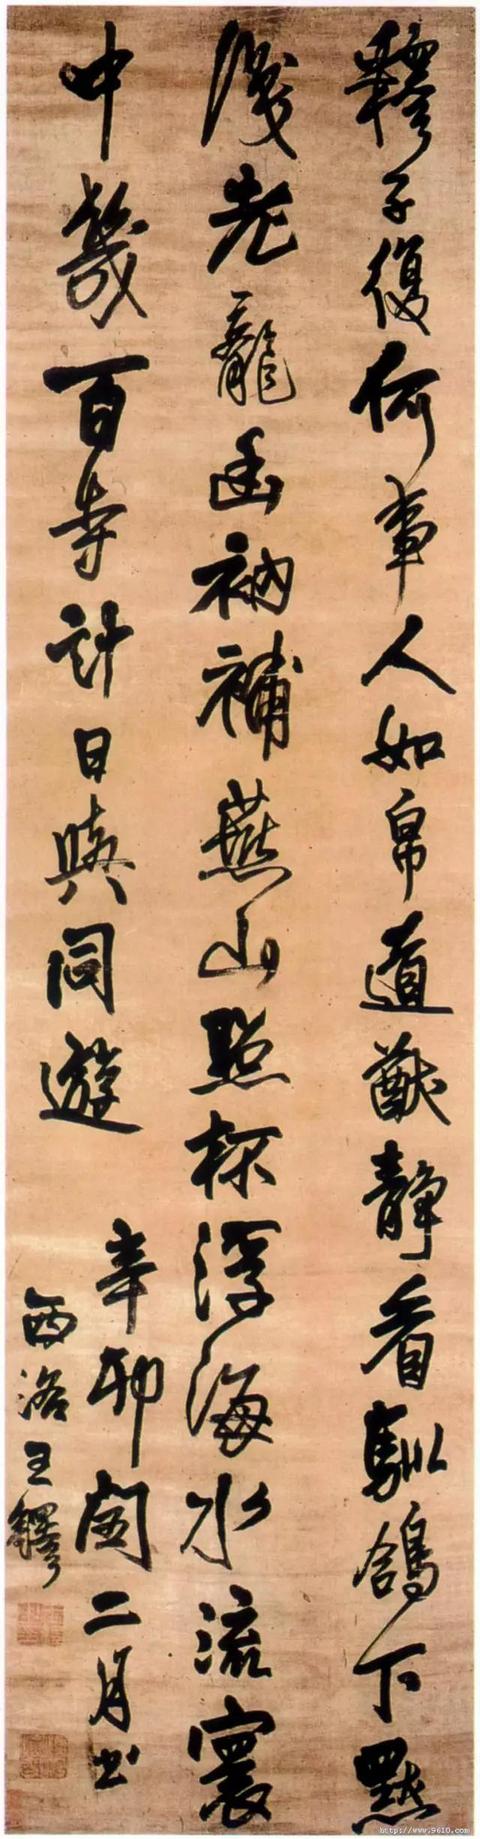 釋子復何事人如帛道猷靜看馴鴿下默
識老龍幽衲補燕山點杯浮海水流寰
中幾百寺計日與同遊
辛卯閏二月書
西洛王鐸
http://www.9610.com